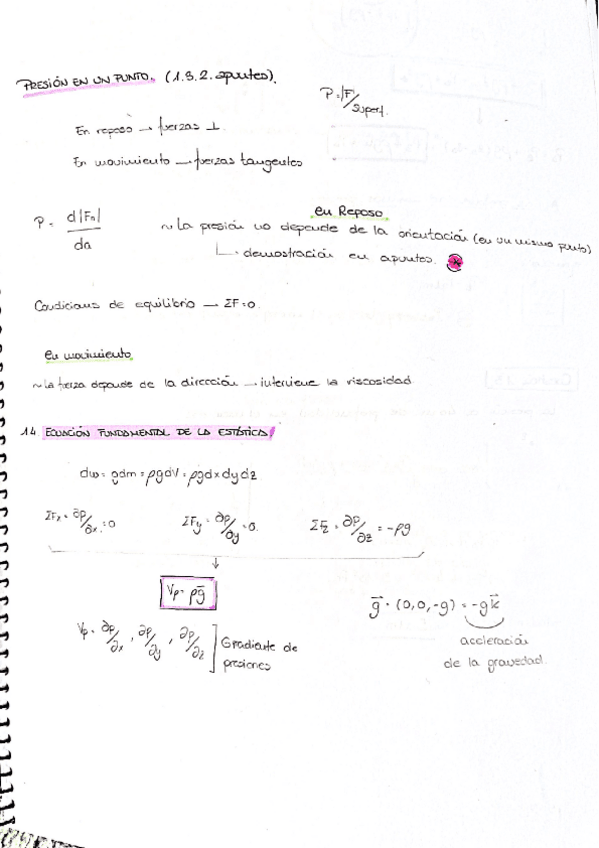 PRESIÓN EN UN PUNTO. (1.3.2. apuntes).
P = |F|/Superf.
En reposo → fuerzas ⊥.
En movimiento → fuerzas tangentes
en Reposo
P = d|Fn|/da ~ La presión no depende de la orientación (en un mismo punto)
↳ demostración en apuntes. *
Condicions de equilibrio → ΣF=0.
en movimiento
~ La fuerza depende de la dirección → interviene la viscosidad.
1.4. ECUACIÓN FUNDAMENTAL DE LA ESTÁTICA
dω = gdm = ρgdV = ρgdxdydz
ΣFx = ∂p/∂x = 0 ΣFy = ∂p/∂y = 0. ΣFz = ∂p/∂z = -ρg
↓
∇p = ρg⃗
g⃗ = (0,0,-g) = -gk⃗
∇p = ∂p/∂x, ∂p/∂y, ∂p/∂z ] Gradiante de
presiones
aceleración
de la gravedad.